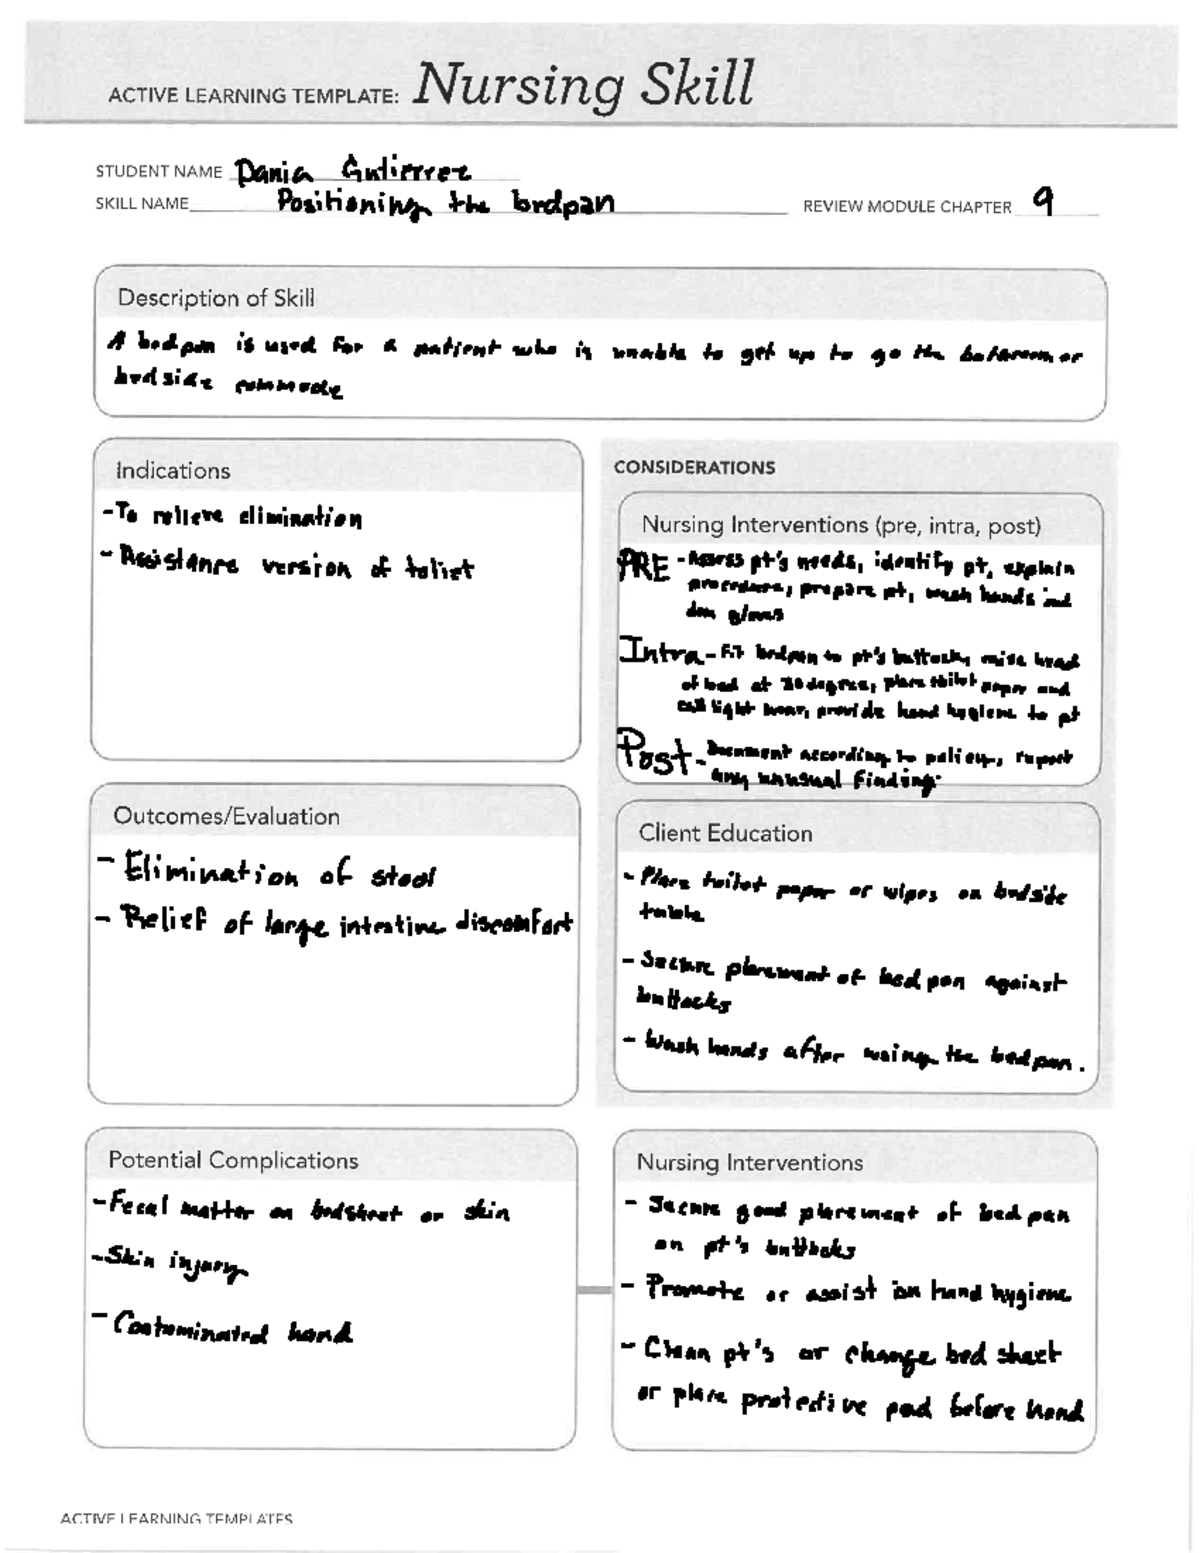 ACTIVE LEARNING TEMPLATE: Nursing Skill
STUDENT NAME Dania Gutierrez
SKILL NAME Positioning the bedpan REVIEW MODULE CHAPTER 9
Description of Skill
A bedpan is used for a patient who is unable to get up to go the bathroom or
bedside commode
Indications
-To relieve elimination
- Assistance version of toliet
CONSIDERATIONS
Nursing Interventions (pre, intra, post)
PRE - Assess pt's needs, identify pt, explain
procedure, prepare pt, wash hands and
don gloves
Intra - Fit bedpan to pt's buttocks, raise head
of bed at 30 degree, place toilet paper and
call light near, provide hand hygiene to pt
Post - Document according to policy, report
any unusual finding.
Outcomes/Evaluation
- Elimination of stool
- Relief of large intestine discomfort
Client Education
- Place toilet paper or wipes on bedside
table
- Secure placement of bedpan against
buttocks
- Wash hands after using the bedpan.
Potential Complications
-Fecal matter on bedsheet or skin
-Skin injury
- Contaminated hand
Nursing Interventions
- Secure good placement of bedpan
on pt's buttocks
- Promote or assist on hand hygiene
- Clean pt's or change bed sheet
or place protective pad before hand
ACTIVE LEARNING TEMPLATES